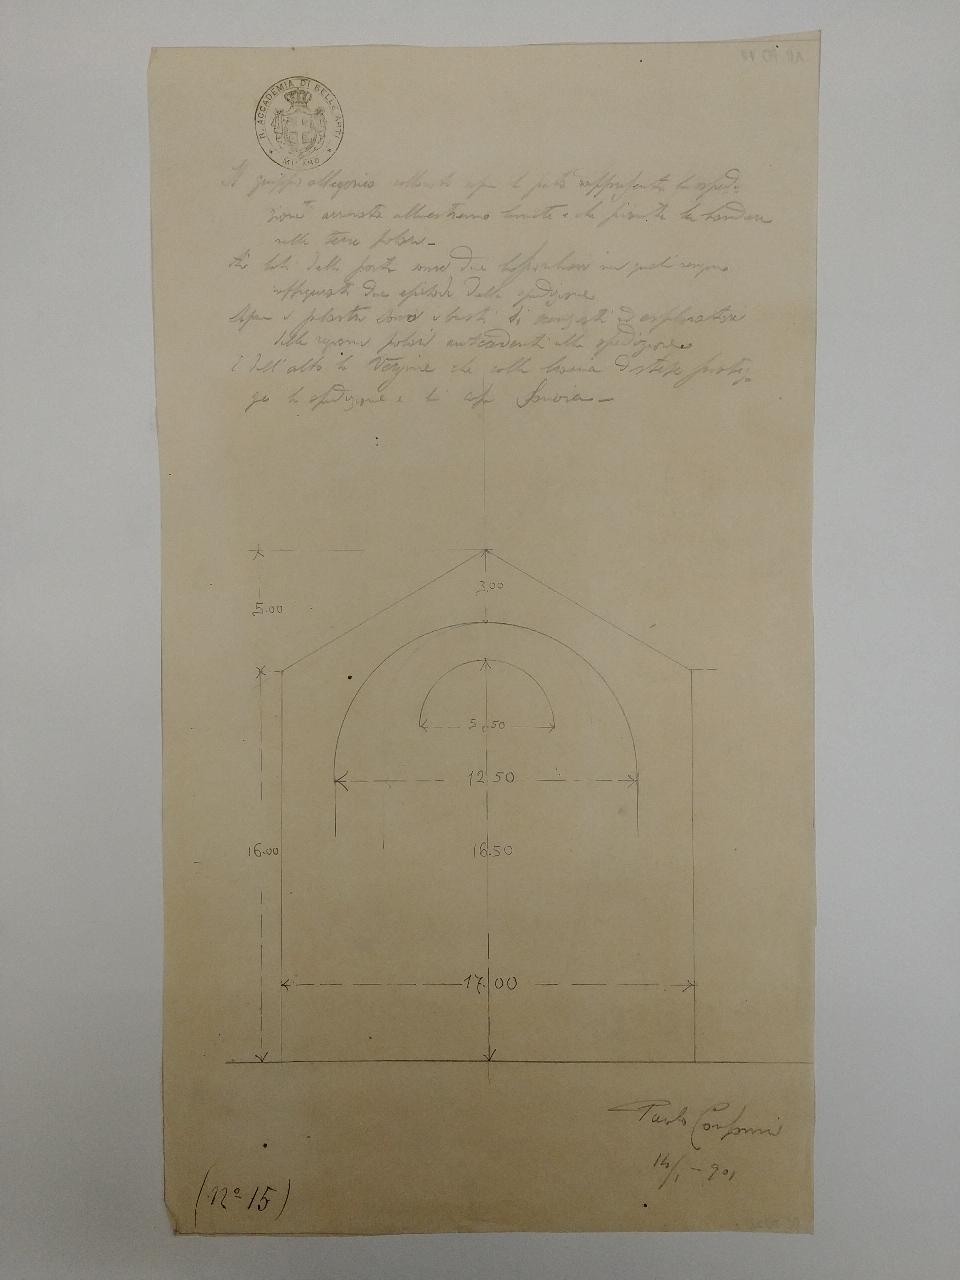 R. ACCADEMIA DI BELLE ARTI
MILANO
Il gruppo allegorico collocato sopra la porta rappresenta la spedi-
zione arrivata all'estremo limite e che pianta la bandiera
nelle terre polari -
Ai lati della porta sono due bassorilievi nei quali vengono
raffigurati due episodi della spedizione
Sopra i pilastri sono i busti di esploratori
delle regioni polari antecedenti alla spedizione
E dall'alto la Vergine che colla mano distesa proteg-
ge la spedizione e la casa Savoia -
3.00
5.00
5.50
12.50
16.00
16.50
17.00
Paolo
14/1 - 901
(nº 15)